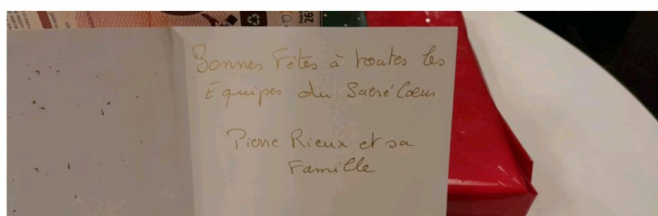 Bonnes Fêtes à toutes les
Équipes du Sacré Coeur
Pierre Rieux et sa
Famille
26